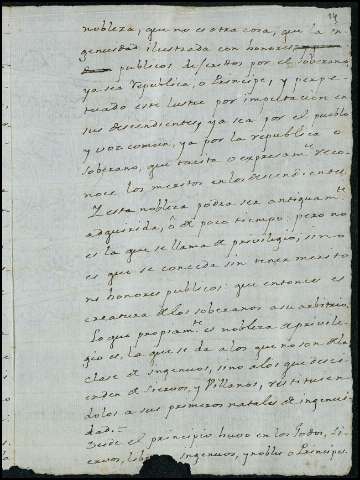 nobleza, que no es otra cosa, que la in
genuidad ilustrada con honores
publicos dados por el soberano,
ya sea republica, o Principe, y perpe-
tuado este lustre por imputacion en
sus descendientes, ya sea por el pueblo
y voz comun, ya por la republica o
soberano, que tacita o expresamte. reco-
noce los meritos en los descendientes.
Y esta nobleza podra ser antiguamte.
adquirida, ó de poco tiempo: pero no
es la que se llama de privilegio, sino
es que se conceda sin tener merito
ni honores publicos: que entonces es
creatura de los soberanos a su arbitrio.
Lo que propiamte. es nobleza de privile-
gio es, la que se da a los que no son de la
clase de ingenuos, sino a los que descie
nden de siervos, y Villanos, restituyen
dolos a sus primeros natales de ingenui
dad.=
Desde el principio huvo en los Godos, Si-
ervos, ingenuos, y nobles o Principes.